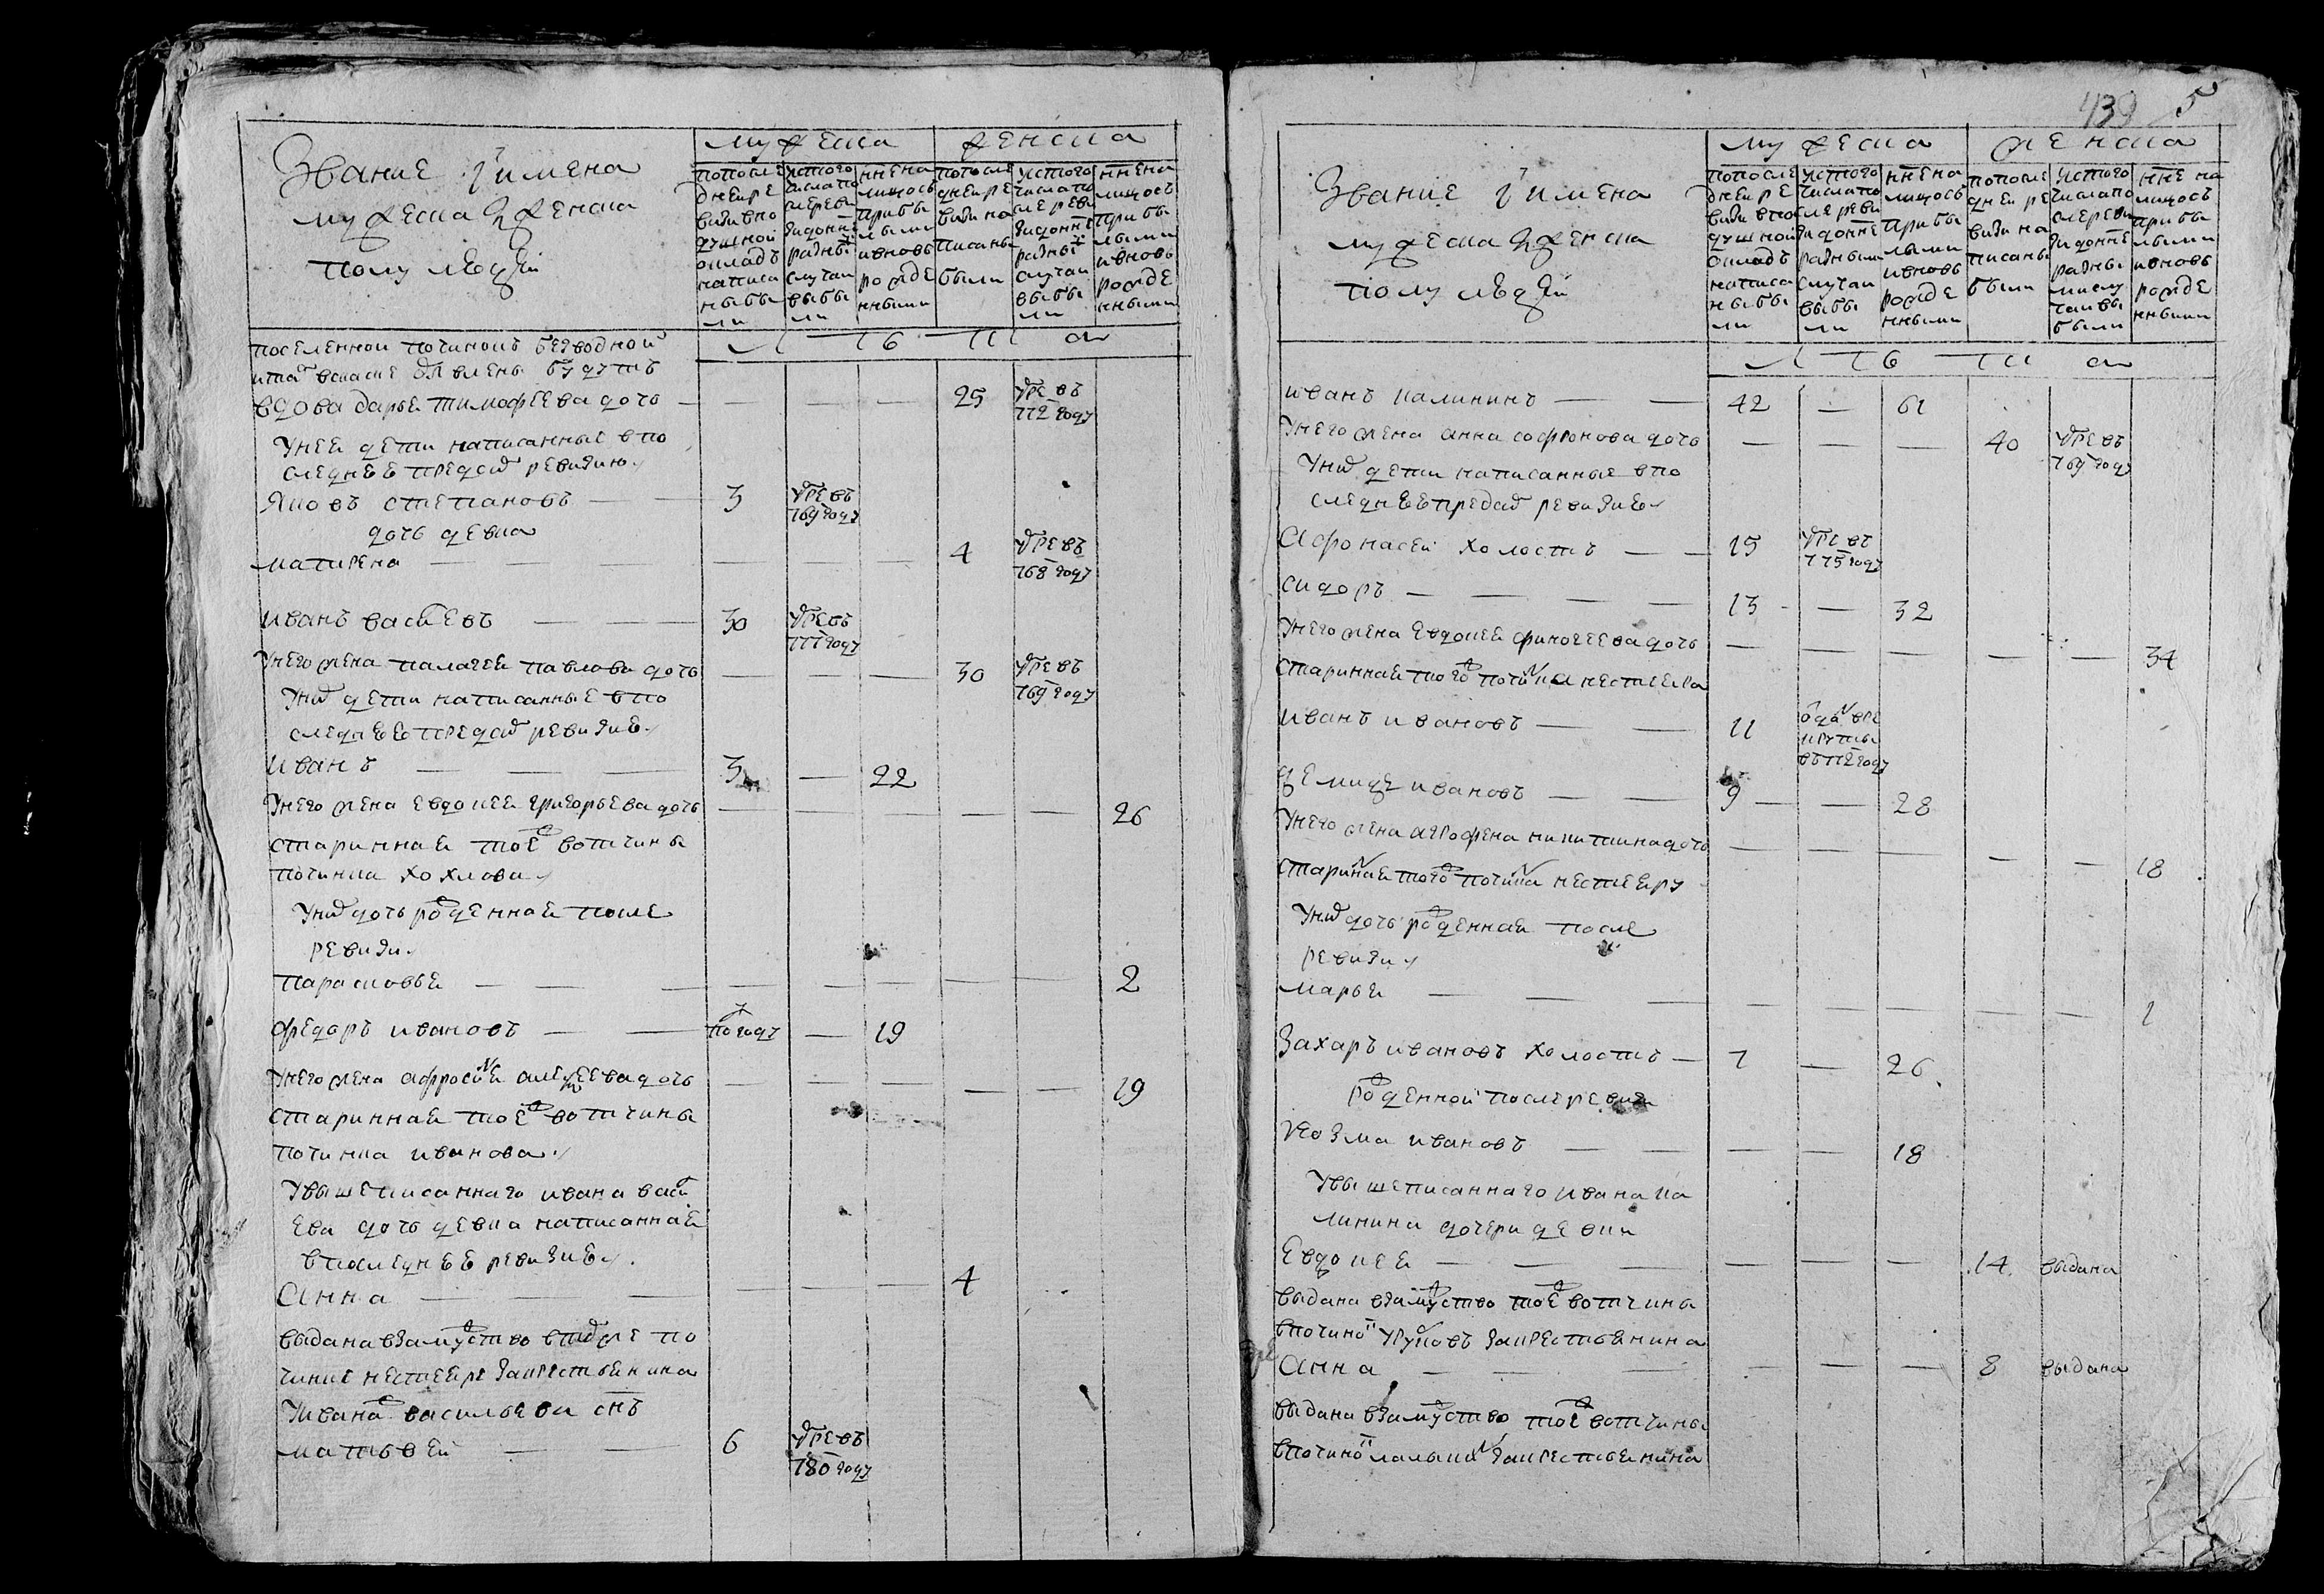 Звание и имена
мужеска и женска
полу людей
мужеска
женска
по после
дней ре
визии по
душной
окладъ
написа
ны бы
ли
ис того
числа по
сле реви
зи до ннѣ
разны
случаи
выбы
ли
ннѣ на
лицосъ
прибы
лыми
и вновь
рожде
нными
по после
дней ре
визи на
писаны
были
ис того
числа по
сле реви
зи до ннѣ
разны
случаи
выбы
ли
ннѣ на
лицосъ
прибы
лыми
и вновь
рожде
нными
Л ѣ т а
вдова дарья тимофеева дочь — — — — 25 умре въ
772 году
у нея дети написанные в по
следнѣе пред сей ревизию
яковъ степановъ — — 3 умре въ
769 году
дочь девка
матрена — — — — — — 4 умре въ
768 году
иванъ васильевъ — — — 30 умре въ
777 году
у него жена палагея павлова дочь — — — 30 умре въ
769 году
у них дети написанные в по
следнѣе пред сей ревизие
иванъ — — — 3 — 22
у него жена евдокея григорьева дочь — — — — — 26
старинная тое ж вотчины
починка хохлова
у них дочь рожденная после
ревизи
парасковья — — — — — — — — 2
федоръ ивановъ — — по году — 19
у него жена афросинья алексеева дочь — — — — — 19
старинная тое ж вотчины
починка иванова
у вышеписаннаго ивана василь
ева дочь девка написанная
в последнѣе ревизие
Анна — — — — — — 4
выдана в замужство в том же по
чинке нестеере за крестьянина
у ивана ж васильева снъ
матвей — — 6 умре въ
780 году
439 5
Звание и имена
мужеска и женска
полу людей
мужеска
женска
по после
дней ре
визи в по
душной
окладъ
написа
ны бы
ли
ис того
числа по
сле реви
зи до ннѣ
разными
случаи
выбы
ли
ннѣ на
лицосъ
прибы
лыми
и вновь
рожде
нными
по после
дней ре
визи на
писаны
были
ис того
числа по
сле реви
зи до ннѣ
разны
ми слу
чаи вы
были
ннѣ на
лицосъ
прибы
лыми
и вновь
рожде
нными
Л ѣ т а
иванъ калининъ — — 42 — 61
у него жена анна софронова дочь — — — 40 умре въ
769 году
у них дети написанные в по
следнѣе пред сей ревизие
Афонасей холостъ — — 15 умре въ
775 году
сидоръ — — — — 13 — 32
у него жена евдокея финогеева дочь — — — — — 34
старинная того ж починка нестеера
иванъ ивановъ — — 11 отдан в ре
круты
въ 772 году
демидъ ивановъ — — 9 — — 28
у него жена аграфена никитина дочь — — — — — 18
стариная того ж починка нестеера
у них дочь рожденная после
ревизи
марья — — — — — — — — 1
Захаръ ивановъ холостъ — 7 — 26
рожденной после ревизи
козма ивановъ — — — — 18
у вышеписаннаго ивана ка
линина дочери девки
Евдокея — — — — — — 14 выдана
выдана в замужство тое ж вотчины
в починок за крестьянина
Анна — — — — — — 8 выдана
выдана в замужство тое ж вотчины
в починок за крестьянина